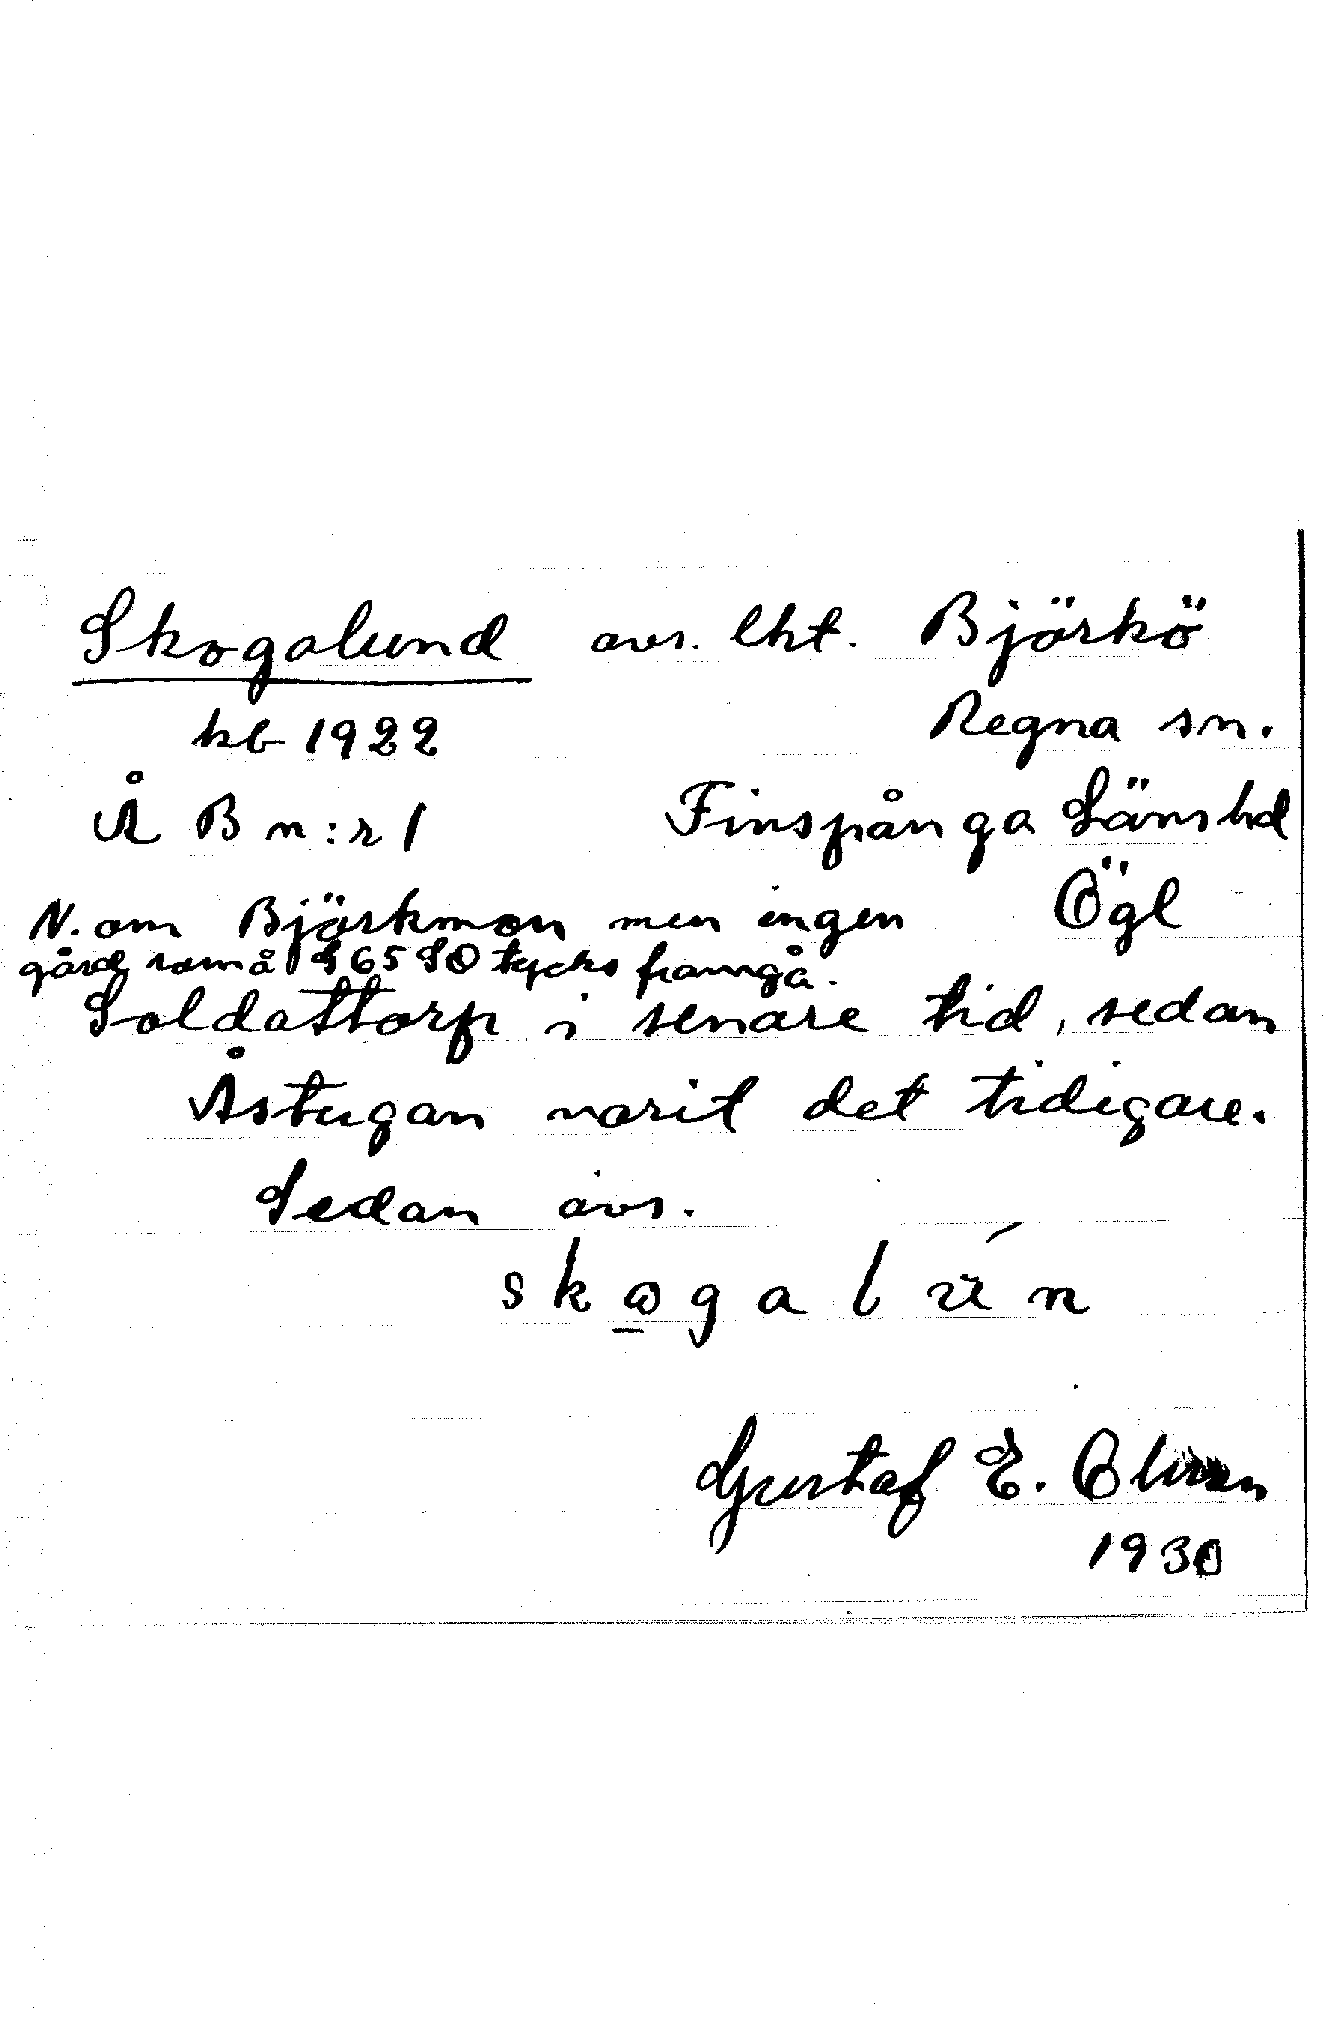 Skogalund avs. lht. Björkö
kb 1922 Regna sn.
Å B n:r 1 Finspånga Länshd
N. om Björkmon men ingen Ögl
gård som å S 65 SO tycks framgå.
Soldattorp i senare tid, sedan
Åstugan varit det tidigare.
Sedan avs.
skogalún
Gustaf E.
1930